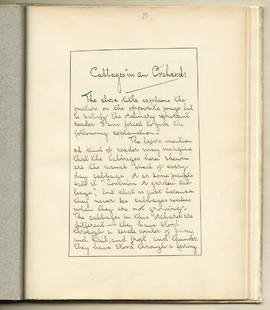 Cabbages in an Orchard.
The above title explains the
picture on the opposite page but
to satisfy the ordinary ignorant
reader I am forced to give the
following explanation.—
The before mention-
ed kind of reader may imagine
that the Cabbages here shown
are the usual kind of every
day cabbage or as some people
call it "Common or garden cab-
bage", but that is just because
they never see cabbages unless
when they are not growing.
The cabbages in this orchard are
different — they have stood
through a severe winter of
and hail and frost and thunder
they have stood through a spring